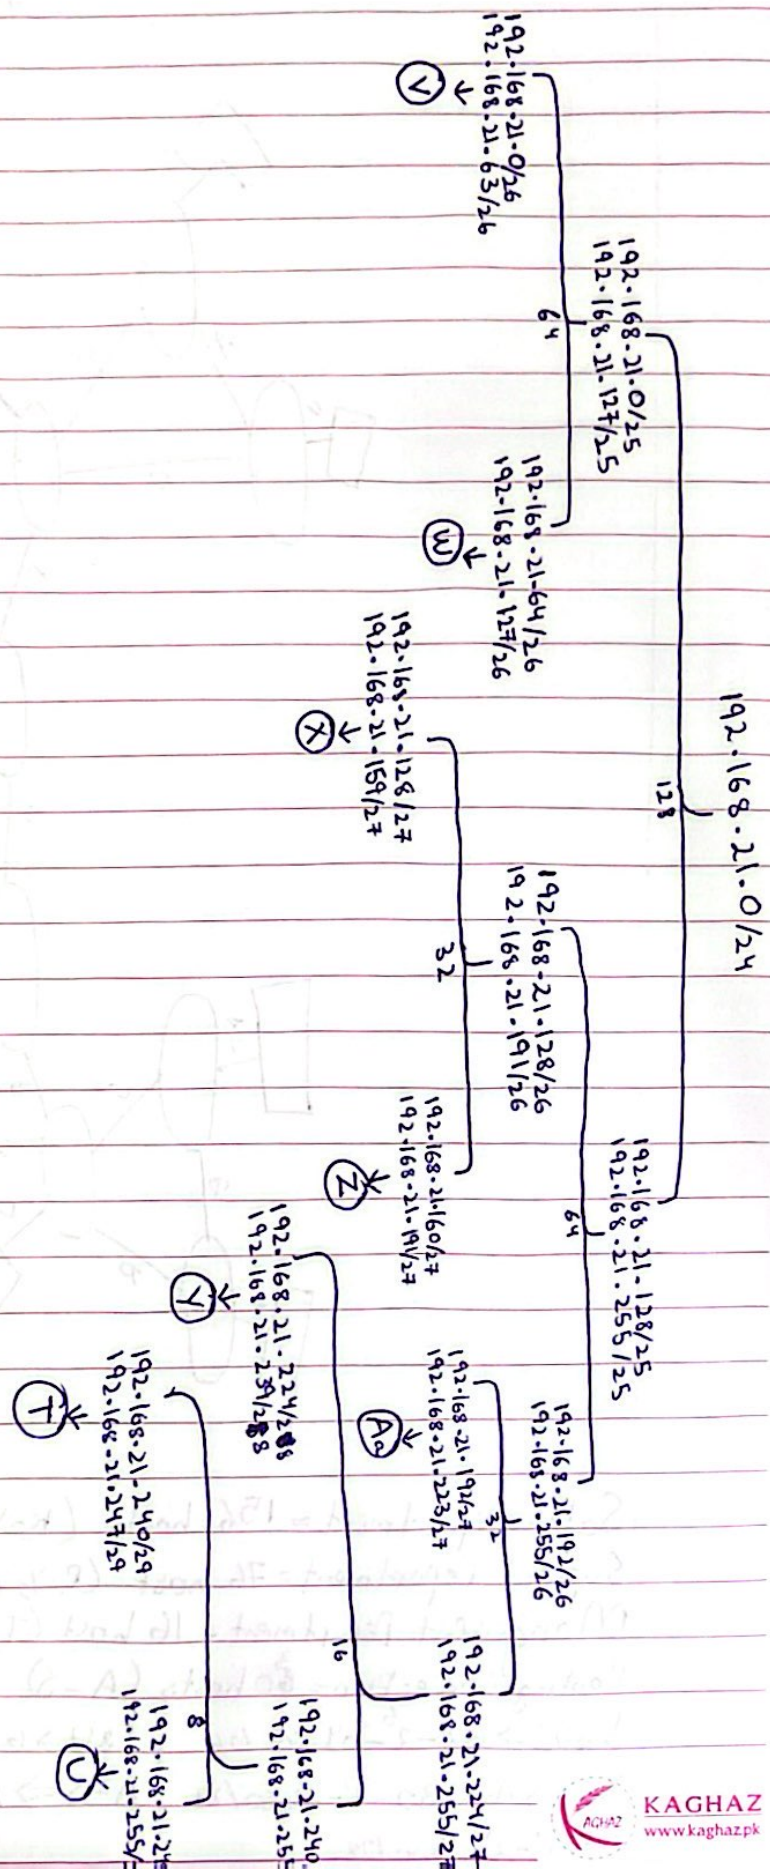 192.168.21.0/24
128
192.168.21.0/25
192.168.21.127/25
192.168.21.128/25
192.168.21.255/25
64
64
192.168.21.0/26
192.168.21.63/26
V
192.168.21.64/26
192.168.21.127/26
W
192.168.21.128/26
192.168.21.191/26
192.168.21.192/26
192.168.21.255/26
32
32
192.168.21.128/27
192.168.21.159/27
X
192.168.21.160/27
192.168.21.191/27
Z
192.168.21.192/27
192.168.21.223/27
Aa
192.168.21.224/27
192.168.21.255/27
16
192.168.21.224/28
192.168.21.239/28
Y
192.168.21.240
192.168.21.255
8
192.168.21.240/29
192.168.21.247/29
T
192.168.21.24
192.168.21.255/
U
KAGHAZ
www.kaghaz.pk
KAGHAZ